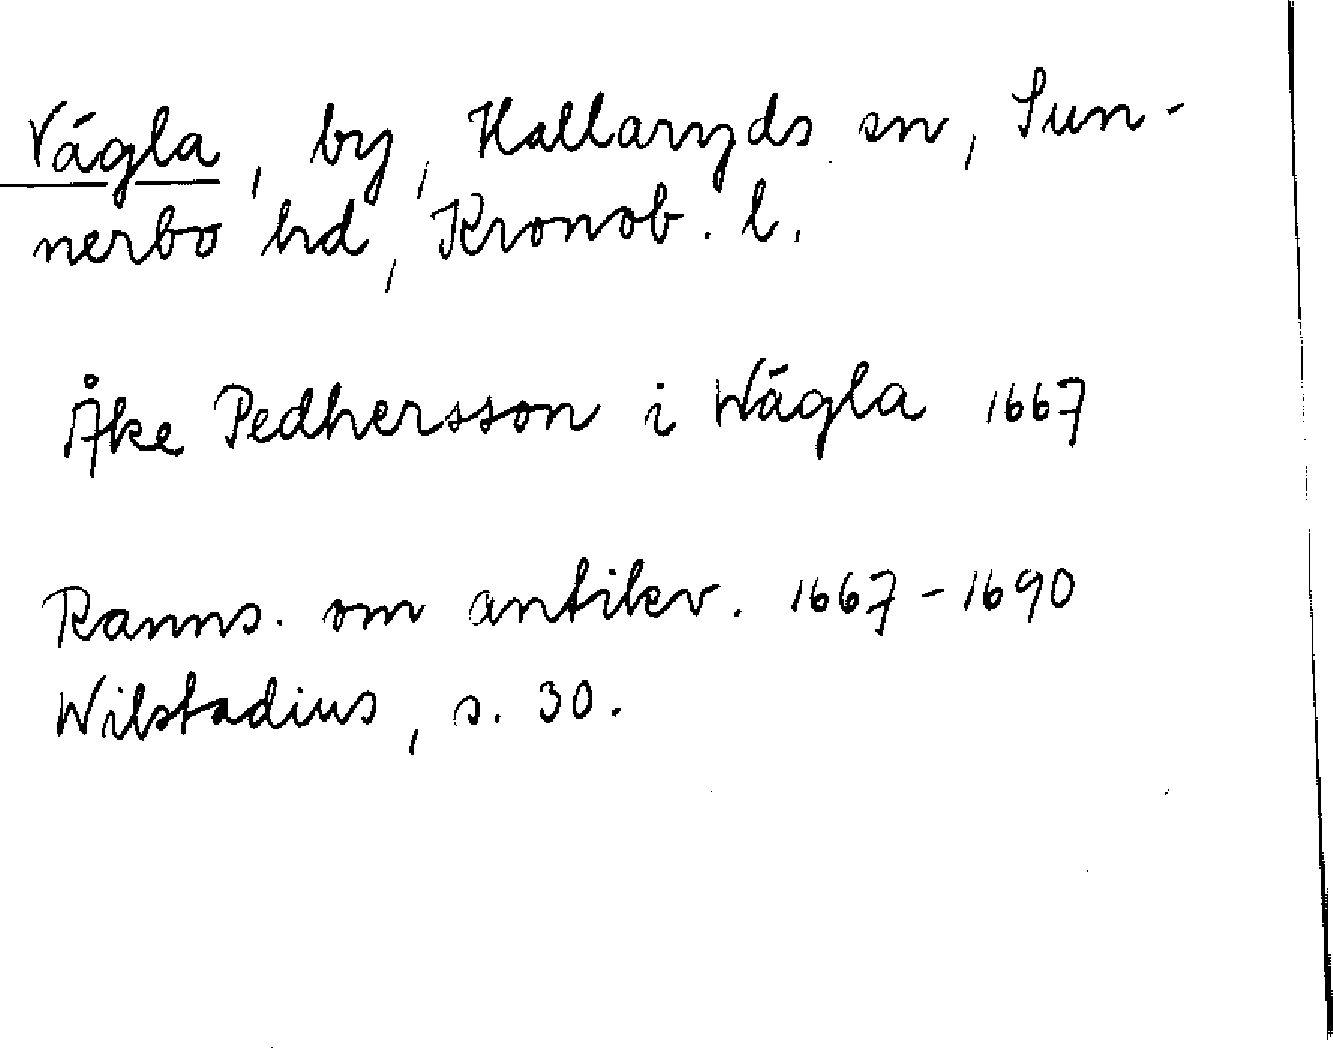 Vägla, by, Hallaryds sn, Sun-
nerbo hd, Kronob. l.
Åke Pedhersson i Wägla 1667
Ranns. om antikv. 1667-1690
Wilstadius, s. 30.